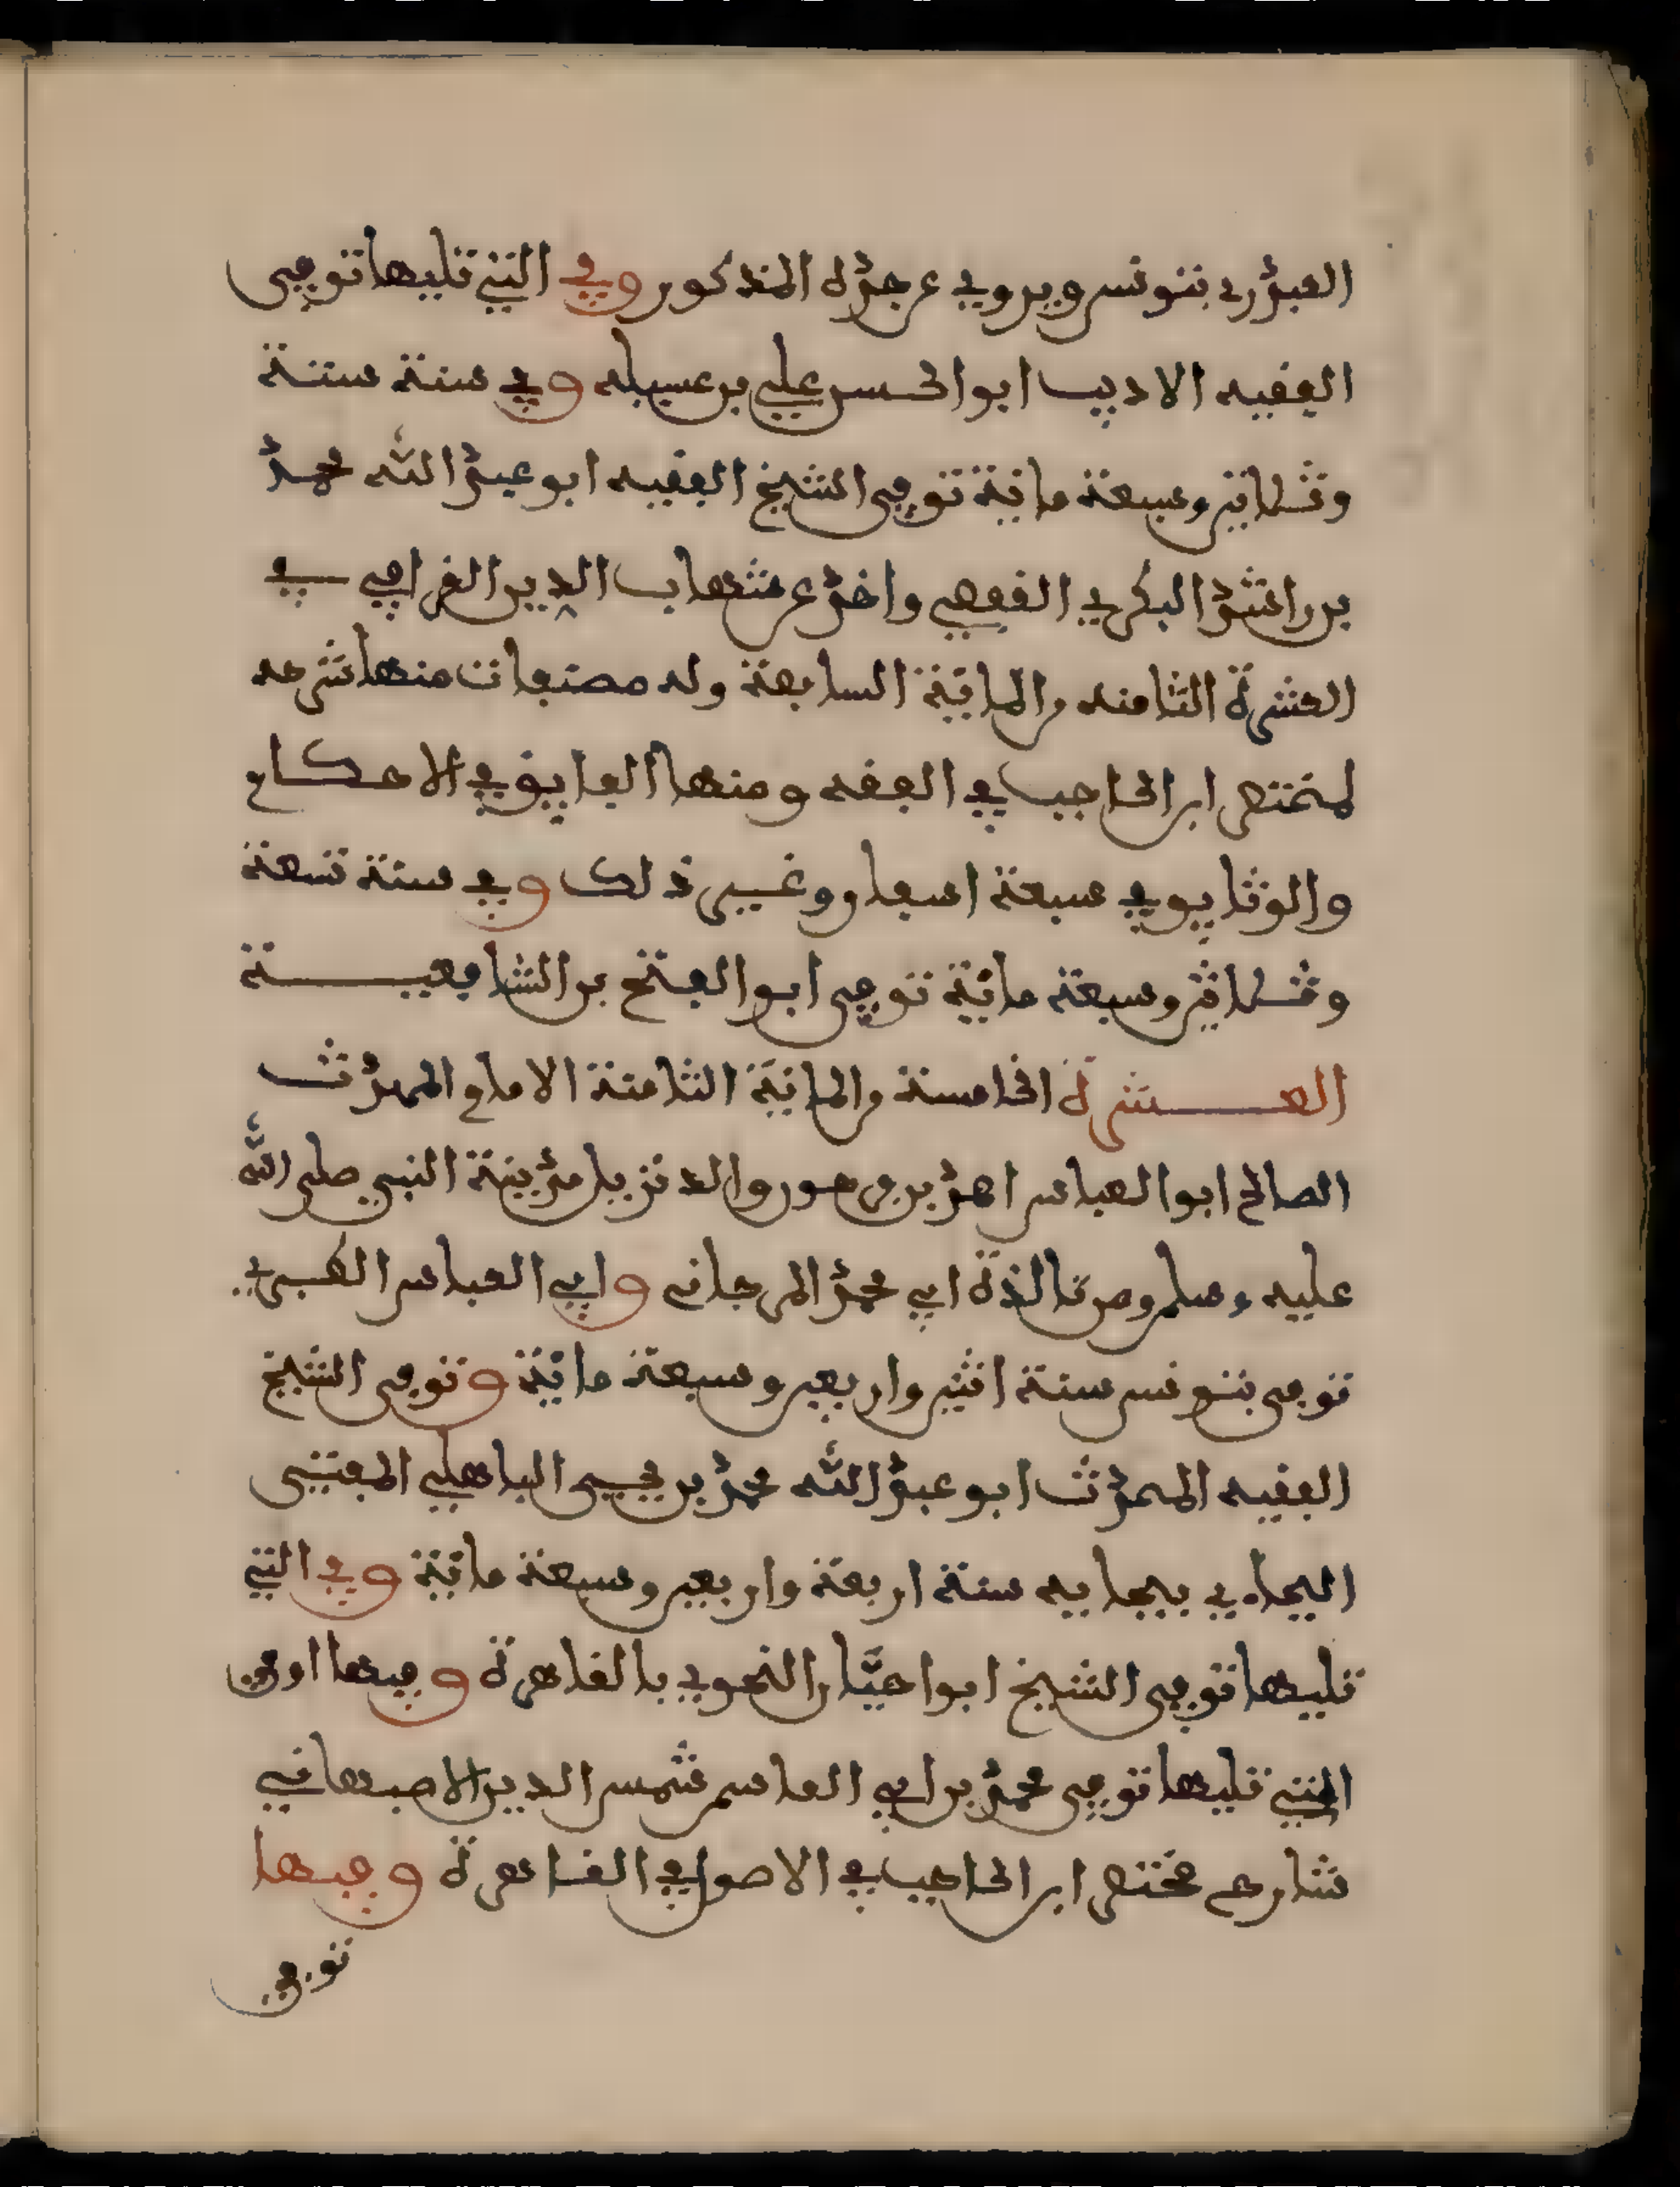 العبدري بتونس ويروي عن جده المذكور وفي التي تليها توفي
الفقيه الاديب ابو الحسن علي بن سبيله وفي سنة ستة
وثلاثين وسبعة مائة توفي الشيخ الفقيه ابو عبد الله محمد
بن راشد البكري القفصي واخذ عن شهاب الدين القرافي في
العشرة الثامنه والمائة السابعة وله مصنفات منها شرحه
لمختصر ابن الحاجب في الفقه ومنها الفايق في الاحكام
والوثايق في سبعة اسفار وغير ذلك وفي سنة تسعة
وثلاثين وسبعة مائة توفي ابو الفتح بن الشافعية
العشرة الخامسة والمائة الثامنة الامام المحدث
الصالح ابو العباس احمد بن مرحور والد نزيل مدينة النبي صلى الله
عليه وسلم ومن تالذة ابي محمد المرجاني وابي العباس الكبيري
توفي بتونس سنة اثنين واربعين وسبعة مائة وتوفي الشيخ
الفقيه المحدث ابو عبد الله محمد بن يحيى الباهلي المفتي
البجاوي ببجايه سنة اربعة واربعين وسبعة مائة وفي التي
تليها توفي الشيخ ابو احيان النحوي بالقاهرة وفيها او في
التي تليها توفي محمد بن ابي القاسم شمس الدين الاصبهاني
شارح مختصر ابن الحاجب في الاصول في القاهرة وفيها
توفي